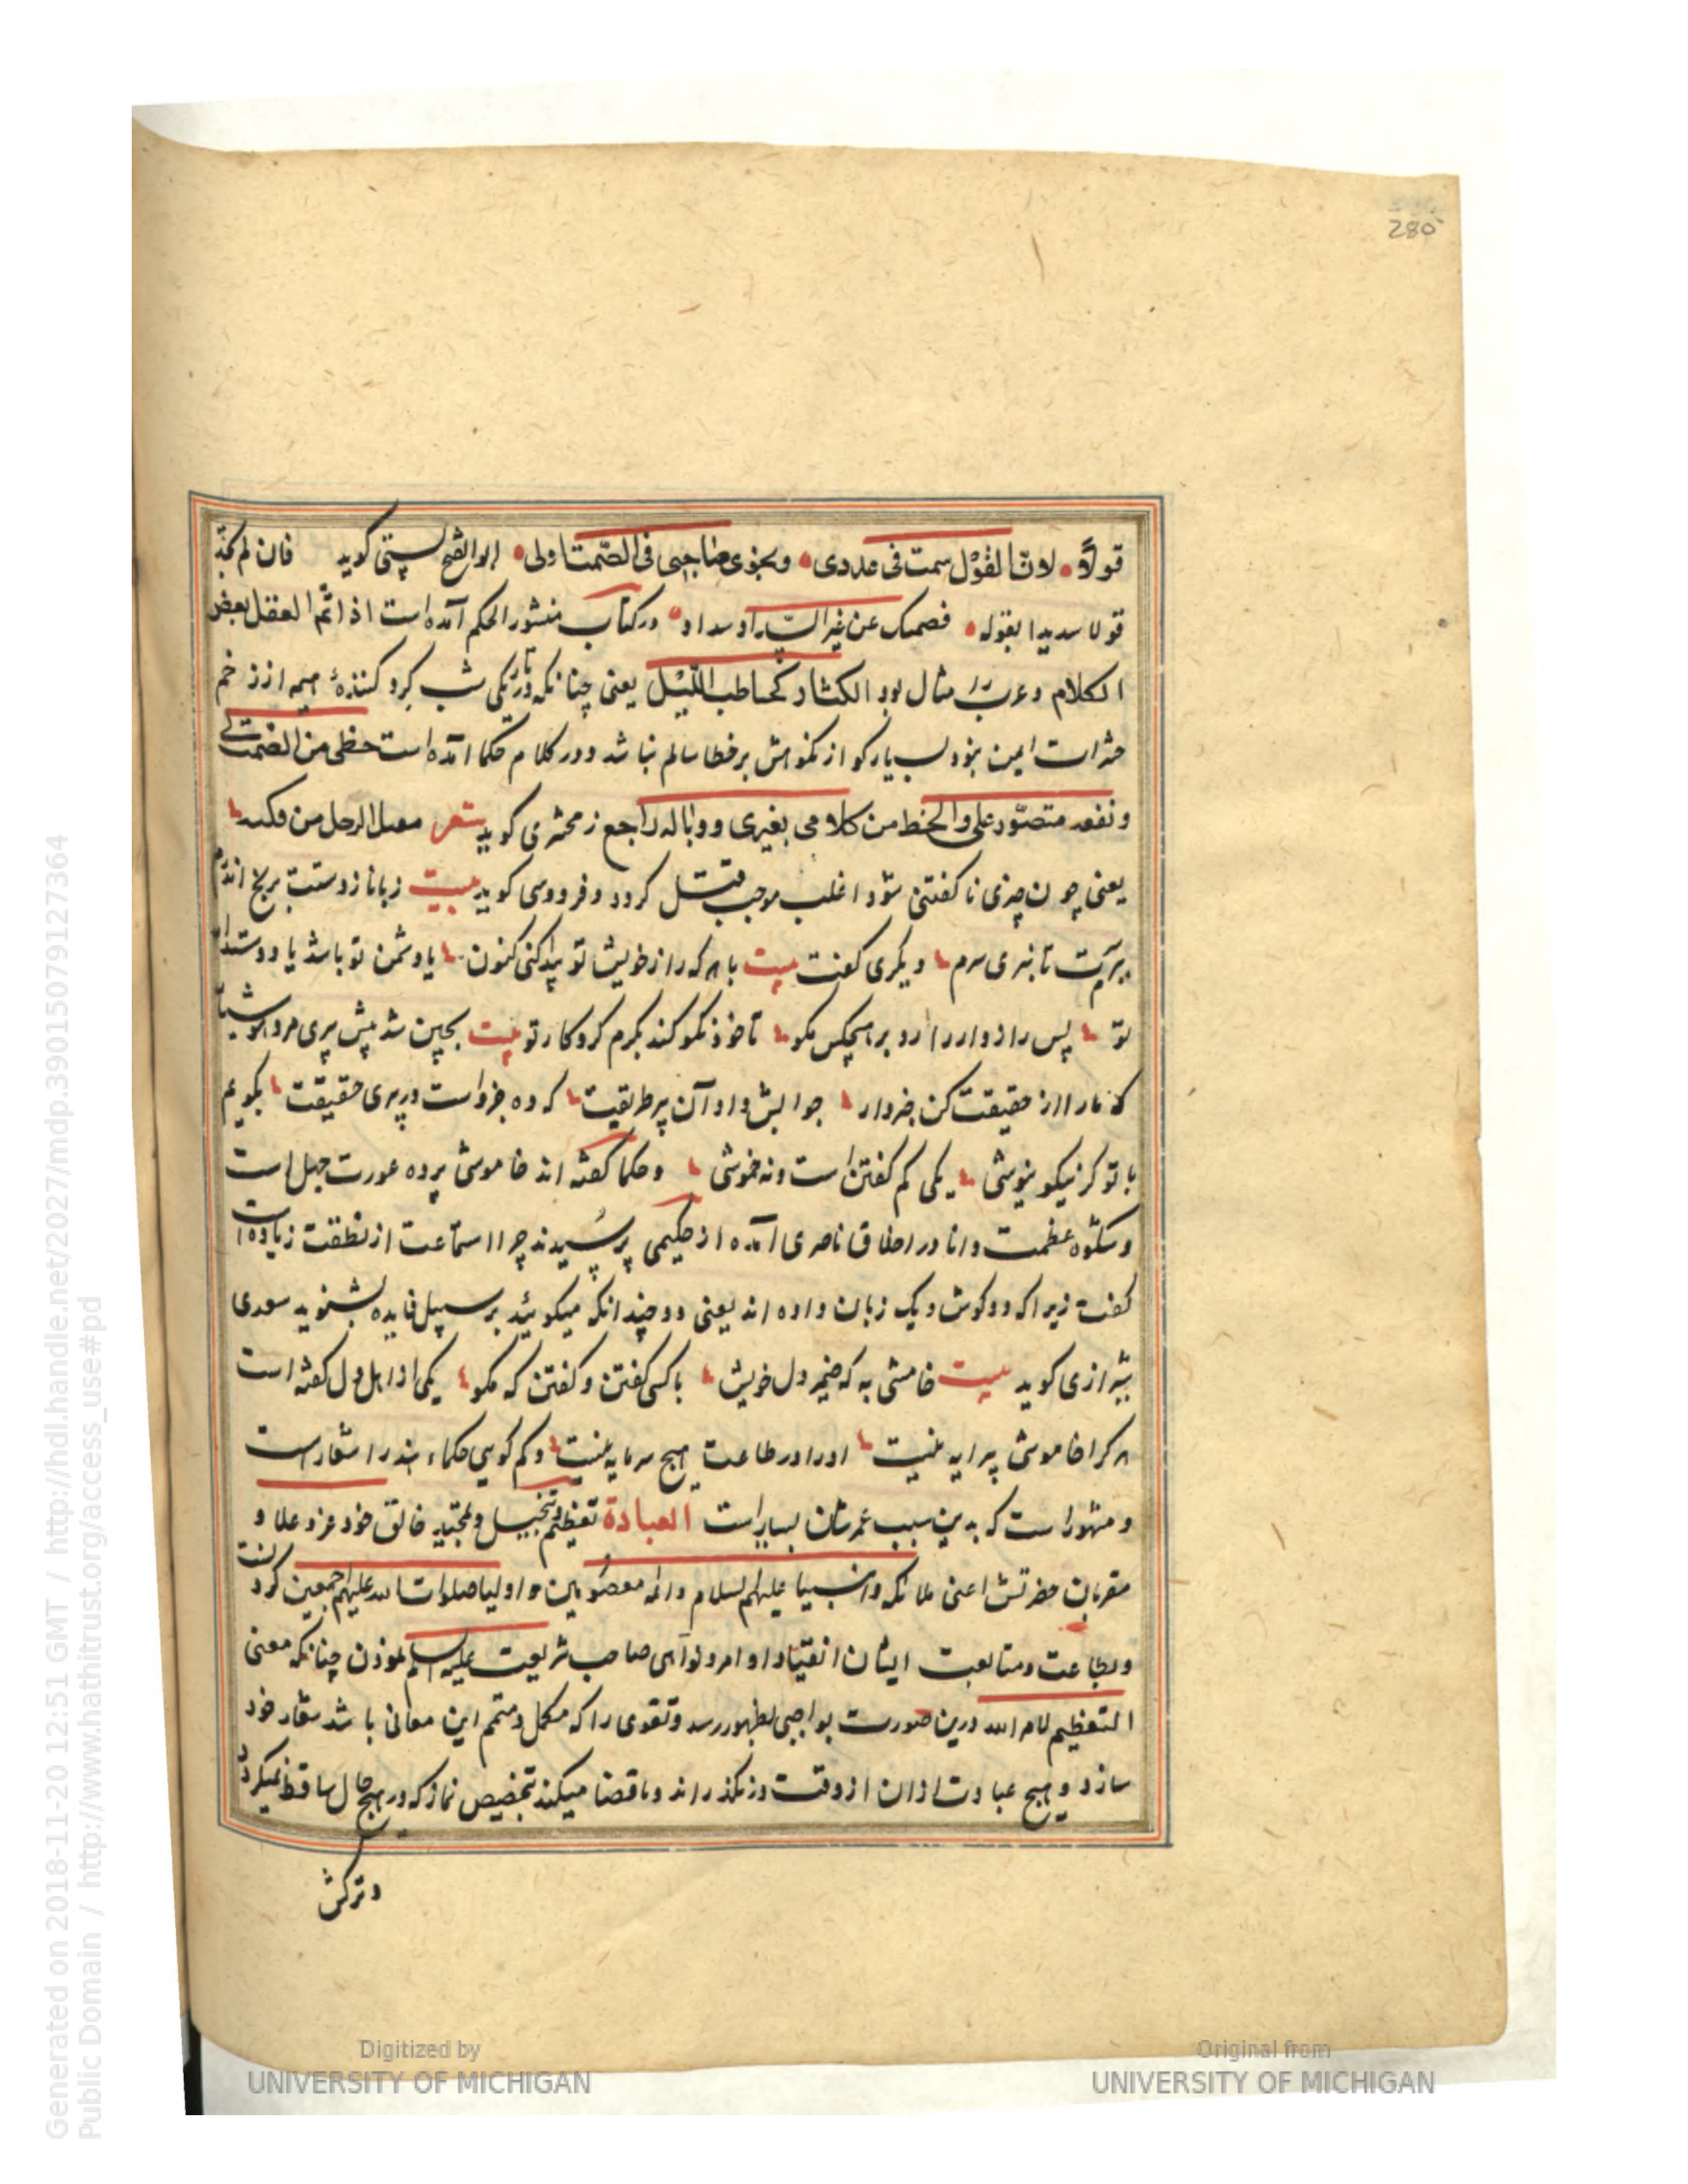 280
قولاً • لان القول سمت فی عددی • ونجوی صاحبی فی الصمت اولی • ابو الفتح بستی کوید فان لم تجد
قولا سدیدا بقوله • فصمتک عن غیر السداد سداد • ودر کتاب منشور الحکم آمده است اذا تم العقل بعض
الکلام وعرب را مثال بود المکثار کحاطب اللیل یعنی چنانکه در تاریکی شب کرد کننده هیمه از زخم
حشرات ایمن نبود بسیار کو از نکوهش بر خطا سالم نباشد ودر کلام حکما آمده است حظی من الصمت لی
ونفعه مقصور علی والحظ من کلامی بغیری ووباله راجع زمخشری کوید شعر مقتل الرجل من فکیه
یعنی چون چیزی ناکفتنی شود اغلب موجب قتل کردد وفردوسی کوید بیت زبانا زدستت برنج اندرم
برآیت تا نبری سرم دیکری کفت بیت با هر که راز خویش تو پیدا کنی کنون یا دشمن تو باشد یا دوستدار
تو پس راز دار را زو بر هیچکس مکو تا خود نکو کند بکرم کردکار تو بیت بچین شد پیش پیری مرد هوشیار
که ما را از حقیقت کن خبردار جوابش داد آن پیر طریقت که ده جزو است در پیری حقیقت بکویم
با تو کر نیکو بنیوشی یکی کم کفتن است ونه خموشی وحکما کفته اند خاموشی پرده عورت جهل است
وشکوه عظمت دانا در اخلاق ناصری آمده از حکیمی پرسیدند چرا استماعت از نطقت زیاده است
کفت زیرا که دو کوش ویک زبان داده اند یعنی دو چندانکه میکوئید بر سبیل فایده بشنوید سعدی
شیرازی کوید بیت خامشی به که ضمیر دل خویش با کسی کفتن وکفتن که مکو یکی از اهل دل کفته است
هر کرا خاموشی پیرایه نیست اورا در طاعت هیچ سرمایه نیست وکم کویی حکماء هند را شعار است
ومشهور است که بدین سبب عمرشان بسیار است العبادة تعظیم وتبجیل وتمجید خالق خود عز وعلا و
مقربان حضرتش اعنی ملائکه وانبیا علیهم السلام وائمه معصومین واولیا صلوات الله علیهم اجمعین کردن
وبطاعت ومتابعت ایشان انقیاد اوامر ونواهی صاحب شریعت علیه السلم نموذن چنانکه معنی
التعظیم لامر الله درین صورت بواجبی بظهور رسد وتقوی را که مکمل ومتمم این معانی باشد شعار خود
سازد وهیچ عبادت ازان از وقت در نکذراند وناقضا میکند تخصیص نماز که در هیچ حال ساقط نمیکردد
وترکش
Generated on 2018-11-20 12:51 GMT / http://hdl.handle.net/2027/mdp.39015079127364
Public Domain / http://www.hathitrust.org/access_use#pd
Digitized by
UNIVERSITY OF MICHIGAN
Original from
UNIVERSITY OF MICHIGAN